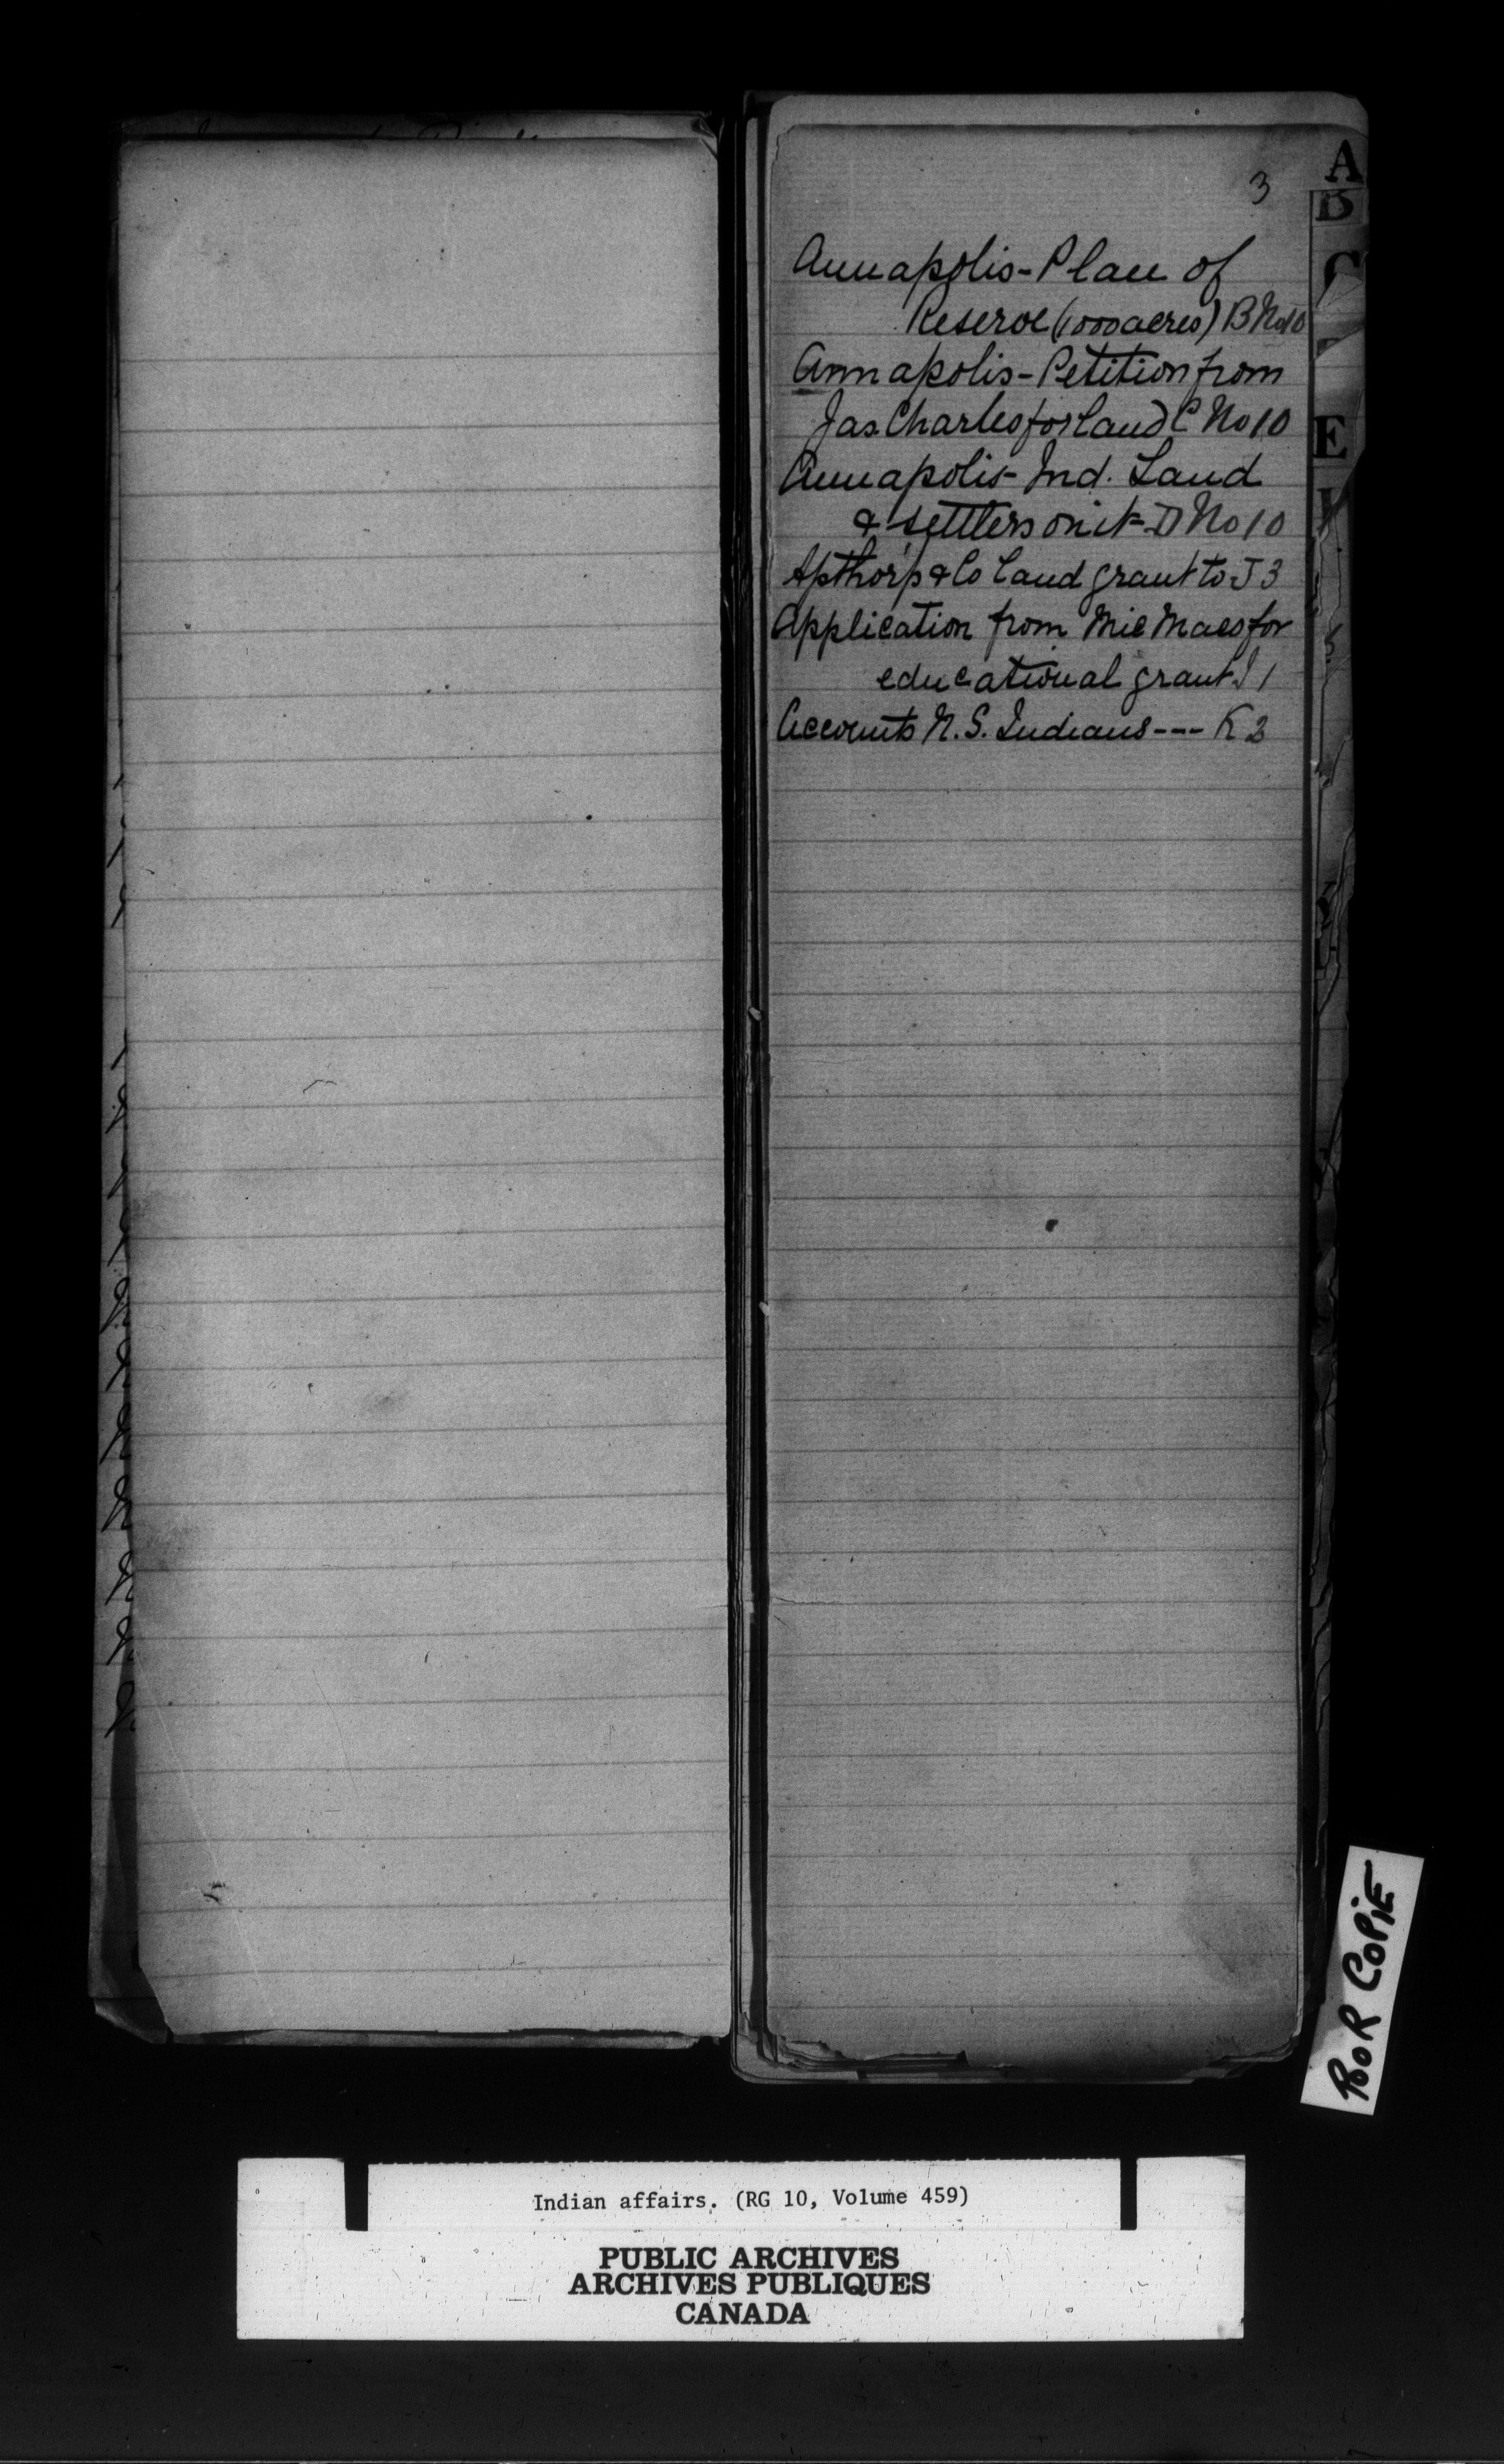 3
Annapolis - Plan of
Reserve (1000 acres) B No 10
Annapolis - Petition from
Jas. Charles for land C No 10
Annapolis - Ind. Land
& settlers on it - D No 10
Apthorp & Co land grant to J 3
Application from Mic Macs for
educational grant I 1
Accounts N. S. Indians --- K 2
A
B
C
E
POOR COPIE
Indian affairs. (RG 10, Volume 459)
PUBLIC ARCHIVES
ARCHIVES PUBLIQUES
CANADA